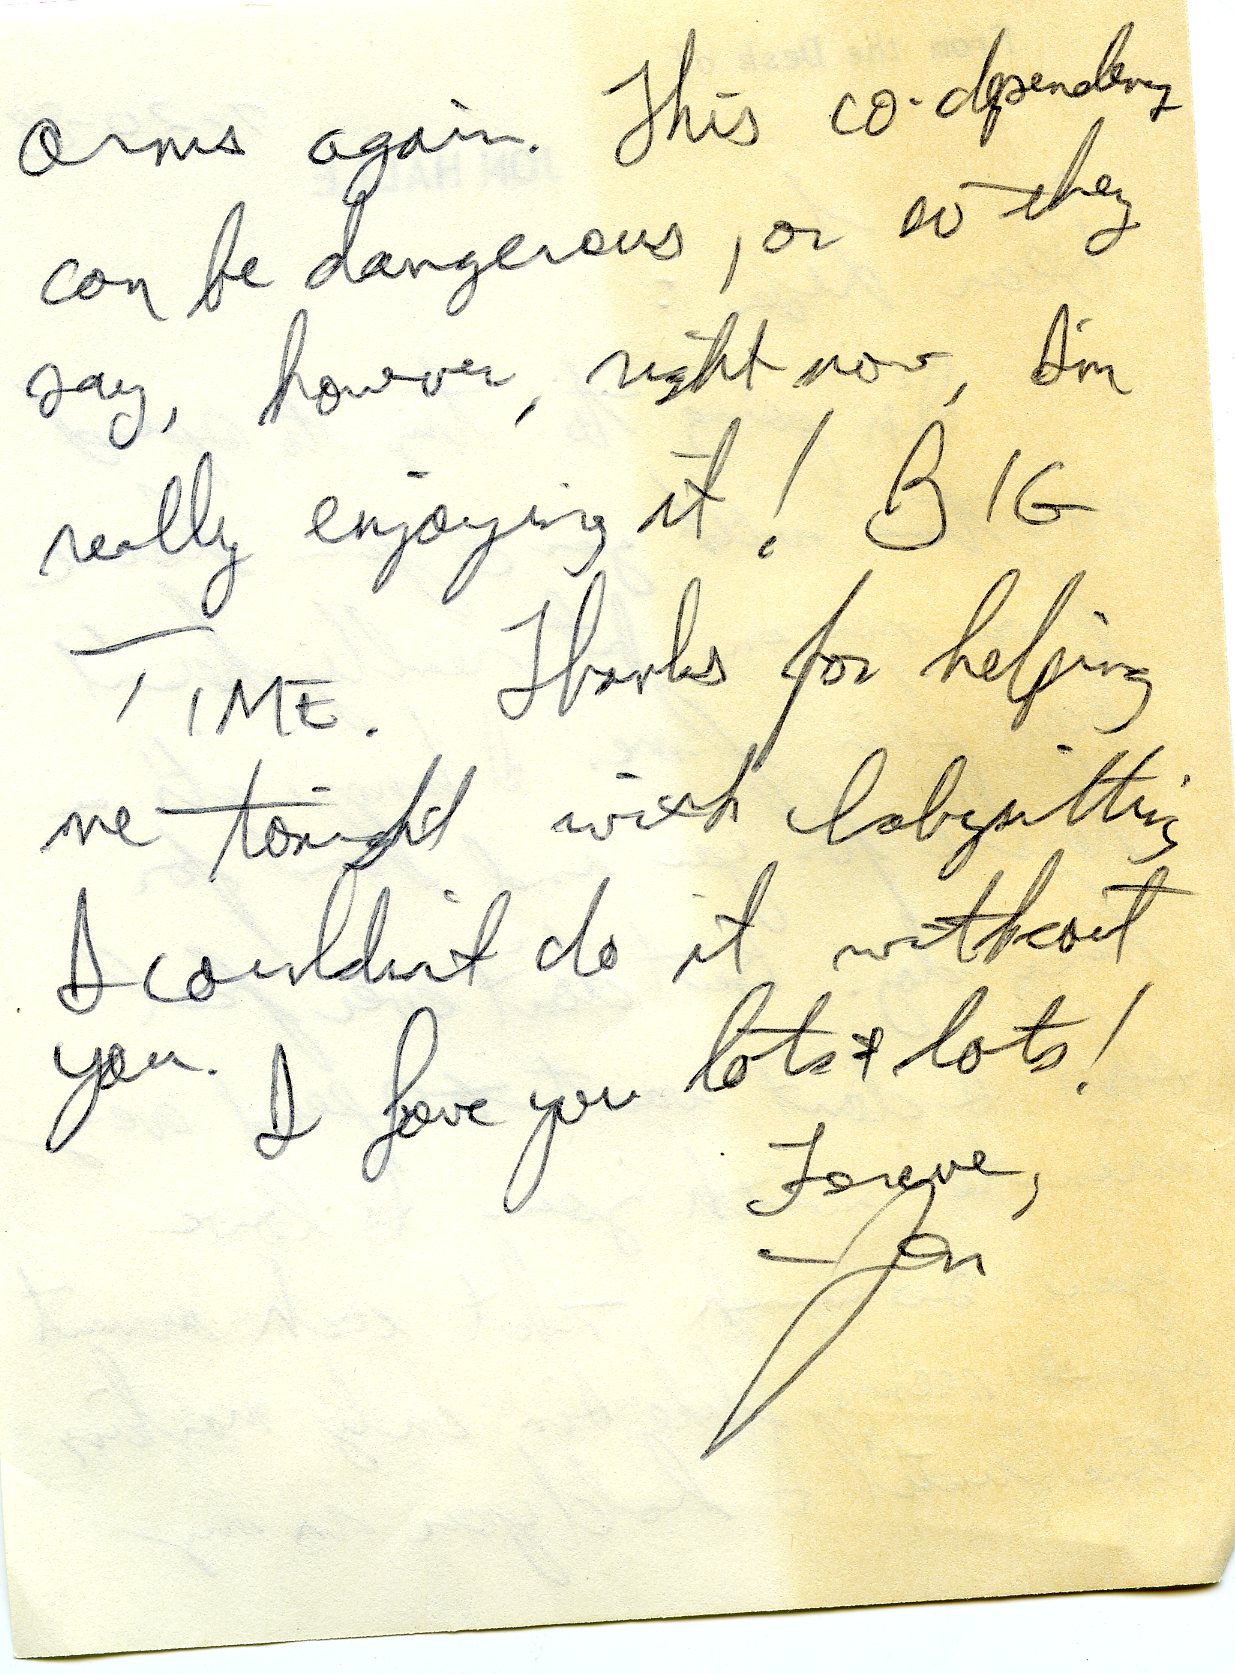 arms again. This co-dependency
can be dangerous, or so they
say, however, right now, I'm
really enjoying it! BIG
TIME. Thanks for helping
me tonight with babysitting
I couldn't do it without
you. I love you lots & lots!
Forever,
- Jon